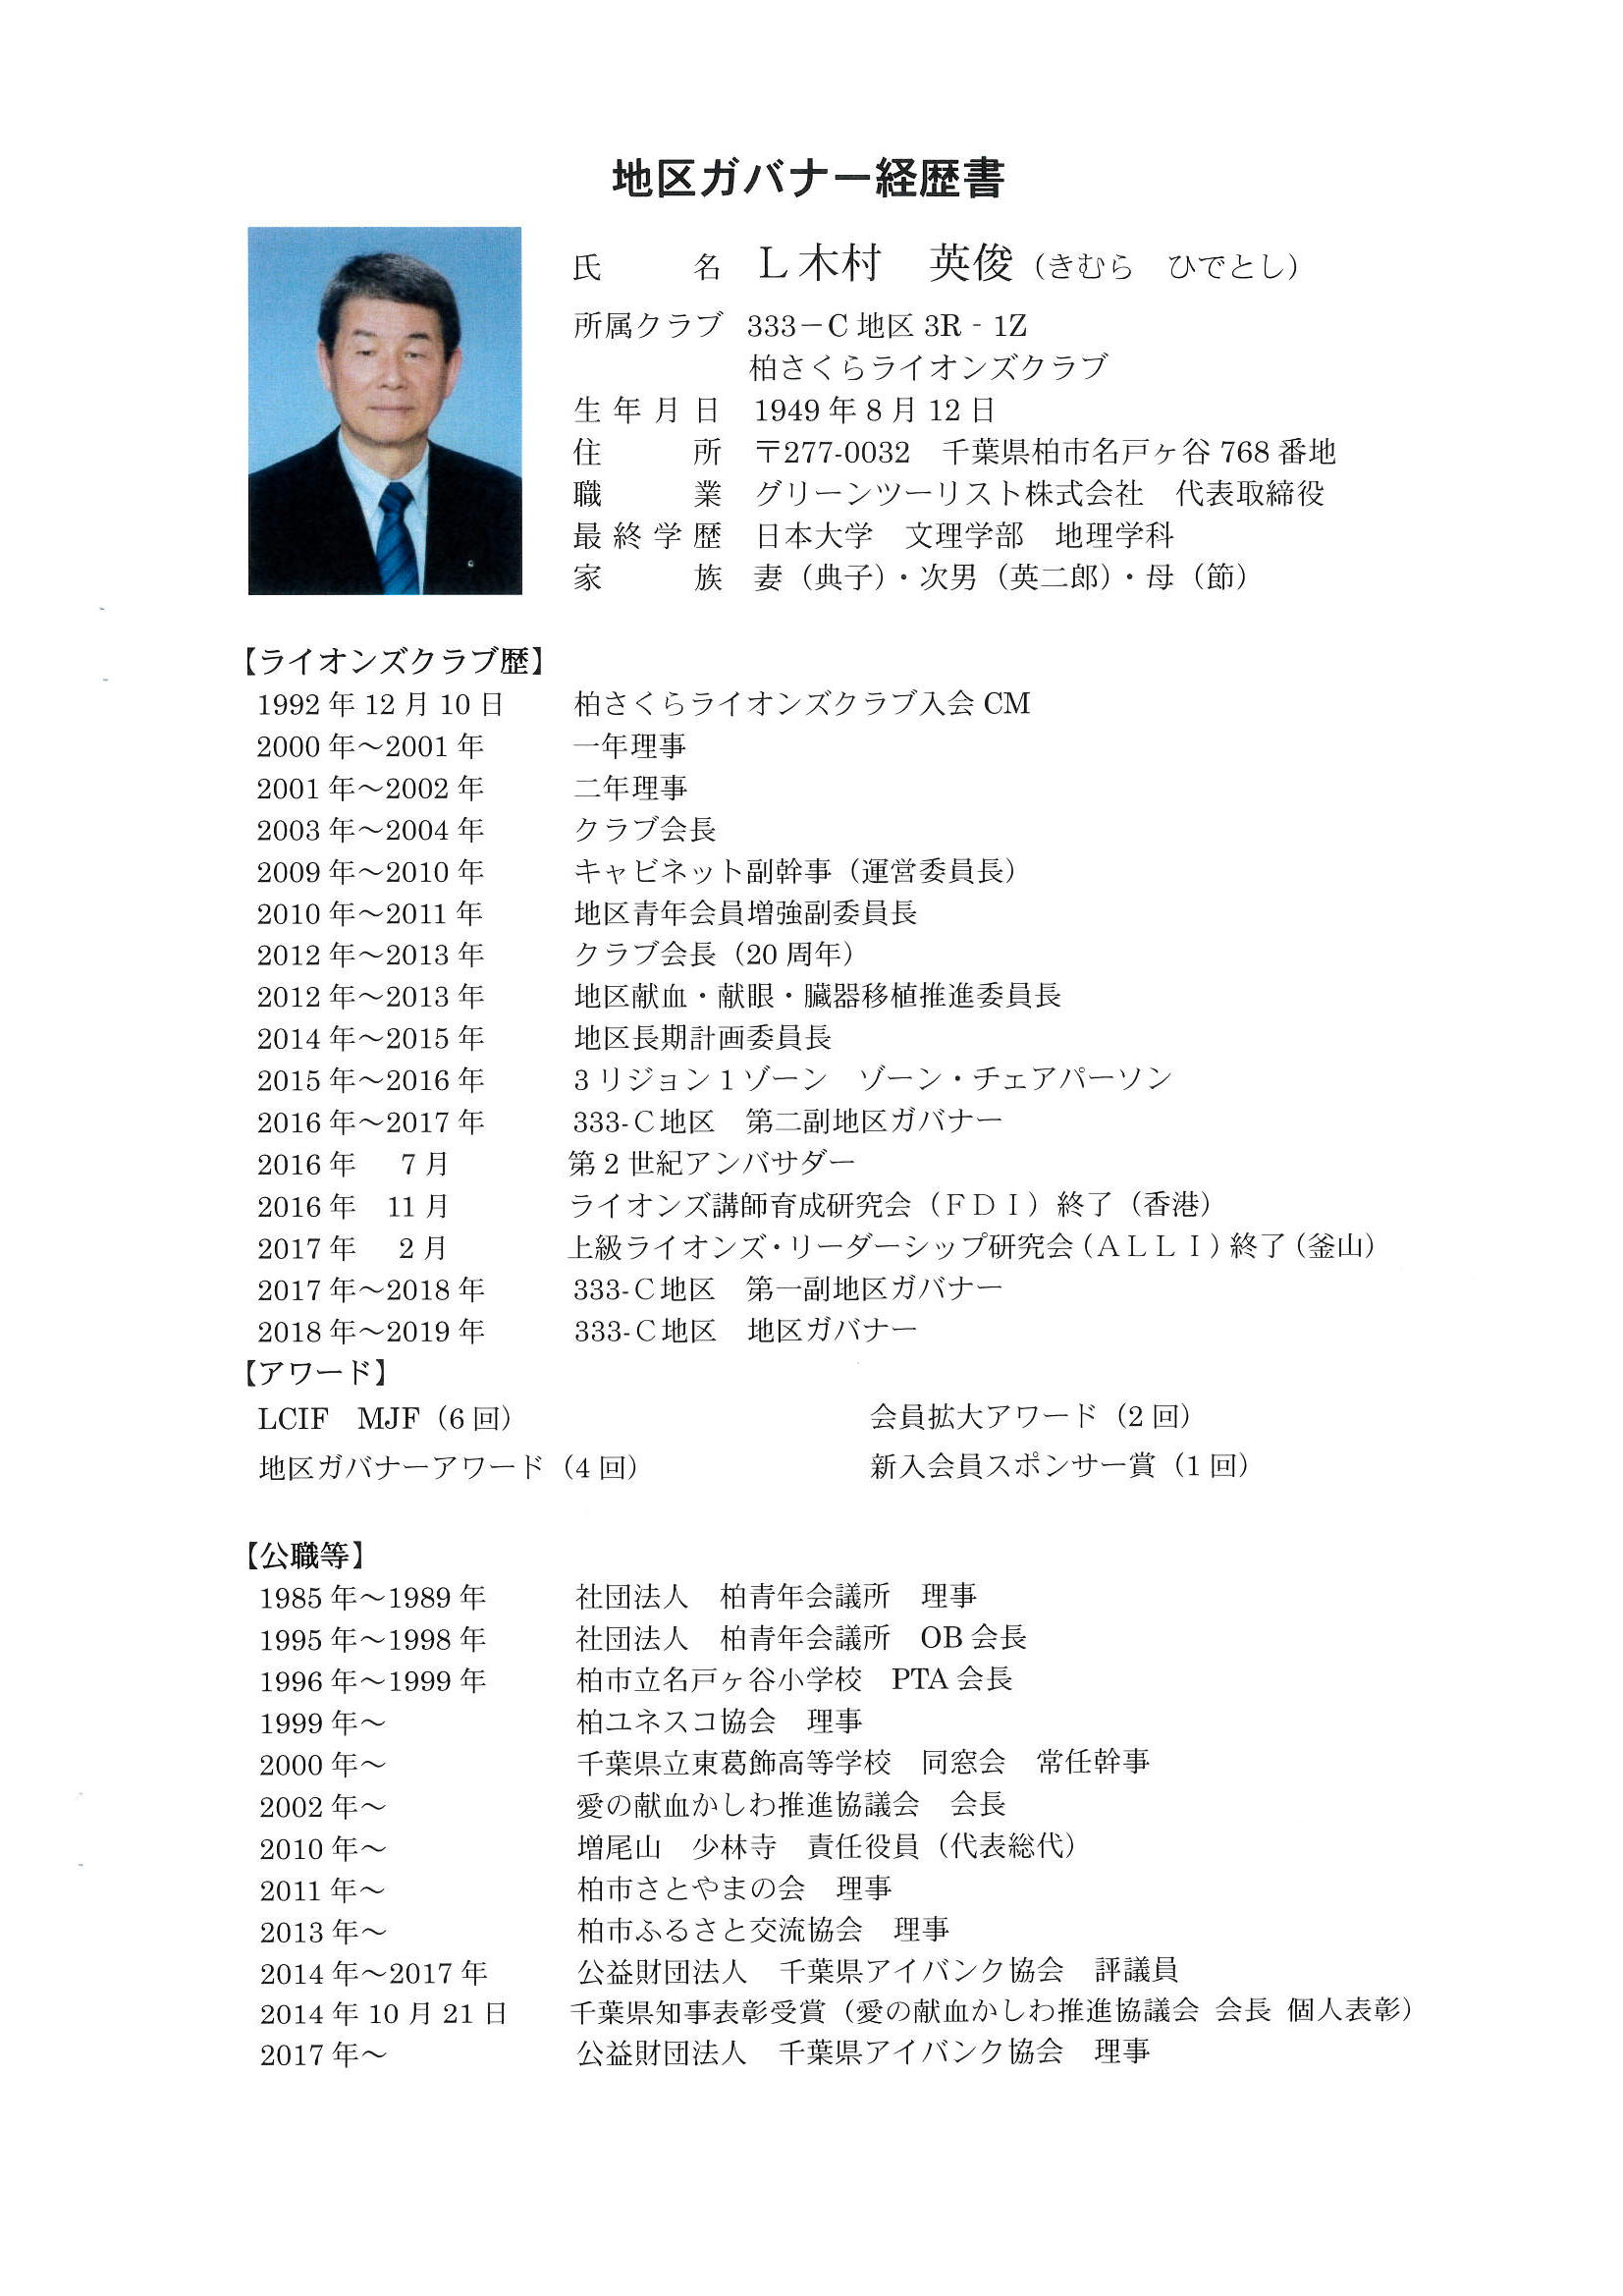 地区ガバナー経歴書
氏　　　名　Ｌ木村　英俊（きむら　ひでとし）
所属クラブ　333－C 地区 3R‐1Z
柏さくらライオンズクラブ
生年月日　1949 年 8 月 12 日
住　　　所　〒277-0032　千葉県柏市名戸ヶ谷 768 番地
職　　　業　グリーンツーリスト株式会社　代表取締役
最終学歴　日本大学　文理学部　地理学科
家　　　族　妻（典子）・次男（英二郎）・母（節）
【ライオンズクラブ歴】
1992 年 12 月 10 日　柏さくらライオンズクラブ入会 CM
2000 年～2001 年　一年理事
2001 年～2002 年　二年理事
2003 年～2004 年　クラブ会長
2009 年～2010 年　キャビネット副幹事（運営委員長）
2010 年～2011 年　地区青年会員増強副委員長
2012 年～2013 年　クラブ会長（20 周年）
2012 年～2013 年　地区献血・献眼・臓器移植推進委員長
2014 年～2015 年　地区長期計画委員長
2015 年～2016 年　3 リジョン 1 ゾーン　ゾーン・チェアパーソン
2016 年～2017 年　333-Ｃ地区　第二副地区ガバナー
2016 年　7 月　第 2 世紀アンバサダー
2016 年　11 月　ライオンズ講師育成研究会（ＦＤＩ）終了（香港）
2017 年　2 月　上級ライオンズ・リーダーシップ研究会（ＡＬＬＩ）終了（釜山）
2017 年～2018 年　333-Ｃ地区　第一副地区ガバナー
2018 年～2019 年　333-Ｃ地区　地区ガバナー
【アワード】
LCIF　MJF（6 回）　会員拡大アワード（2 回）
地区ガバナーアワード（4 回）　新入会員スポンサー賞（1 回）
【公職等】
1985 年～1989 年　社団法人　柏青年会議所　理事
1995 年～1998 年　社団法人　柏青年会議所　OB 会長
1996 年～1999 年　柏市立名戸ヶ谷小学校　PTA 会長
1999 年～　柏ユネスコ協会　理事
2000 年～　千葉県立東葛飾高等学校　同窓会　常任幹事
2002 年～　愛の献血かしわ推進協議会　会長
2010 年～　増尾山　少林寺　責任役員（代表総代）
2011 年～　柏市さとやまの会　理事
2013 年～　柏市ふるさと交流協会　理事
2014 年～2017 年　公益財団法人　千葉県アイバンク協会　評議員
2014 年 10 月 21 日　千葉県知事表彰受賞（愛の献血かしわ推進協議会 会長 個人表彰）
2017 年～　公益財団法人　千葉県アイバンク協会　理事